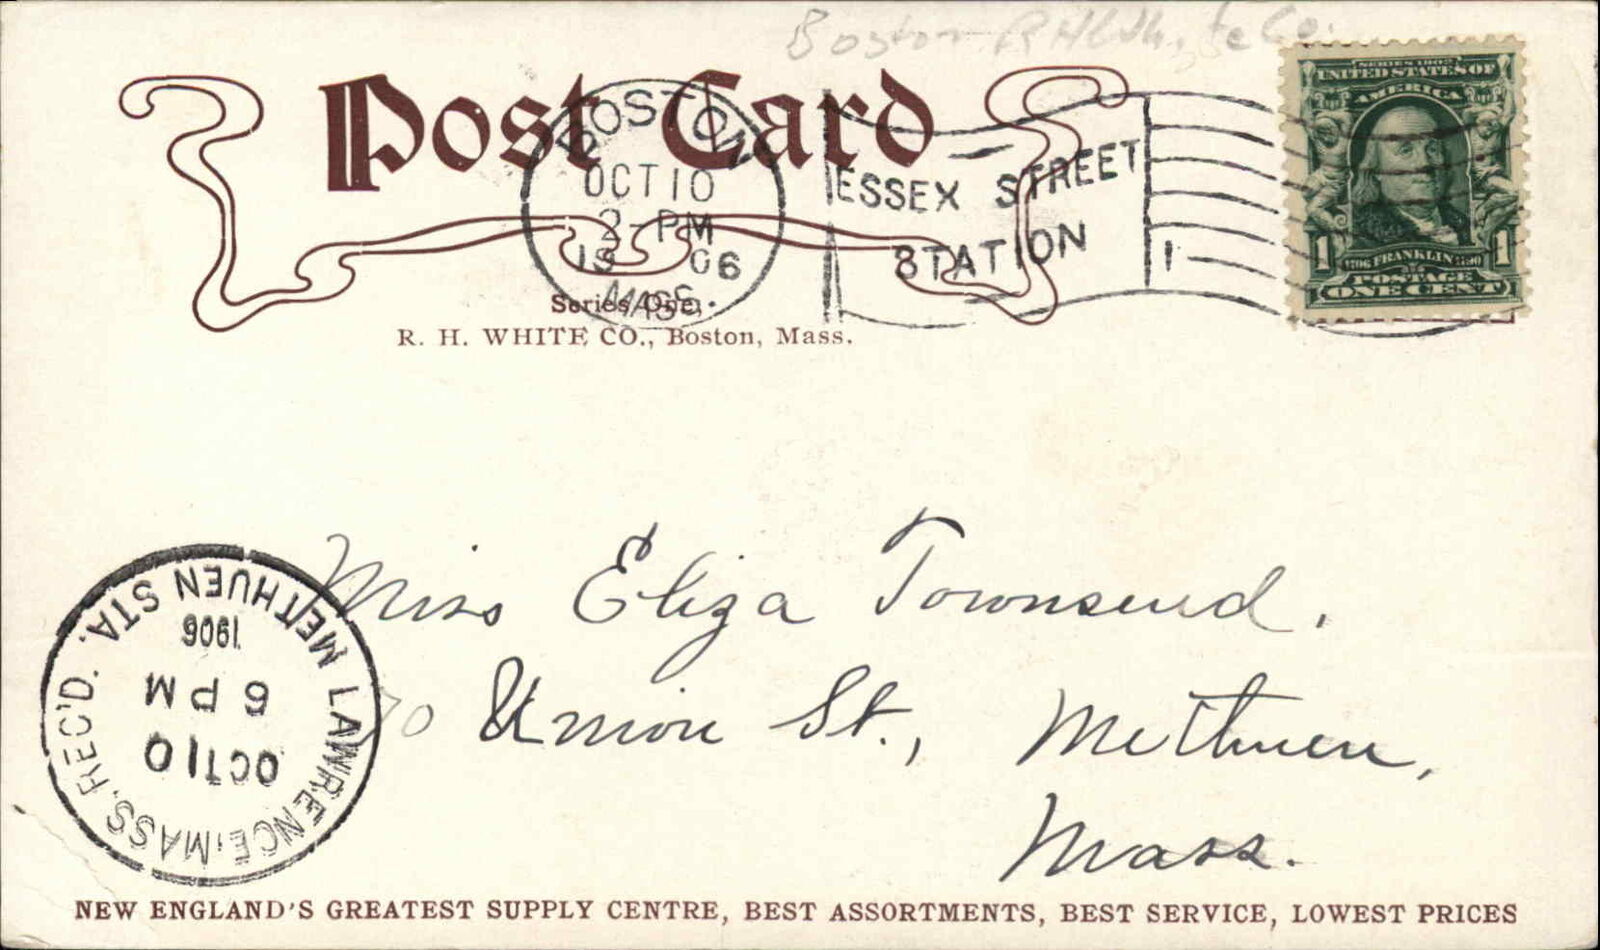 Boston
Post Card
BOSTON
OCT 10
2- PM
06
MASS.
ESSEX STREET
STATION
1
SERIES 1902
UNITED STATES OF
AMERICA
1 1706 FRANKLIN 1790 1
POSTAGE
ONE CENT
Series One,
R. H. WHITE CO., Boston, Mass.
Miss Eliza Townsend.
70 Union St., Methuen,
Mass.
LAWRENCE, MASS. REC'D.
METHUEN STA.
OCT 10
6 PM
1906
NEW ENGLAND'S GREATEST SUPPLY CENTRE, BEST ASSORTMENTS, BEST SERVICE, LOWEST PRICES